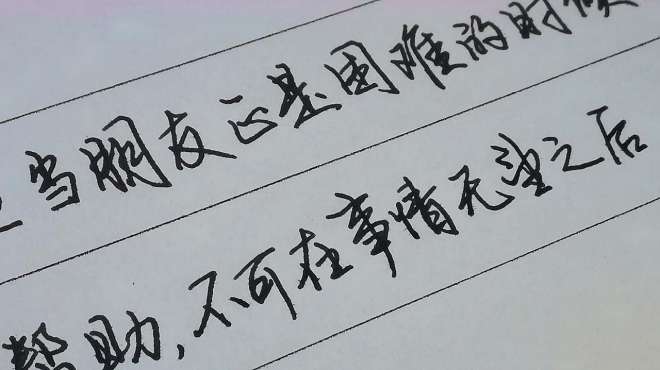 当朋友正是困难的时候
帮助,不可在事情无望之后